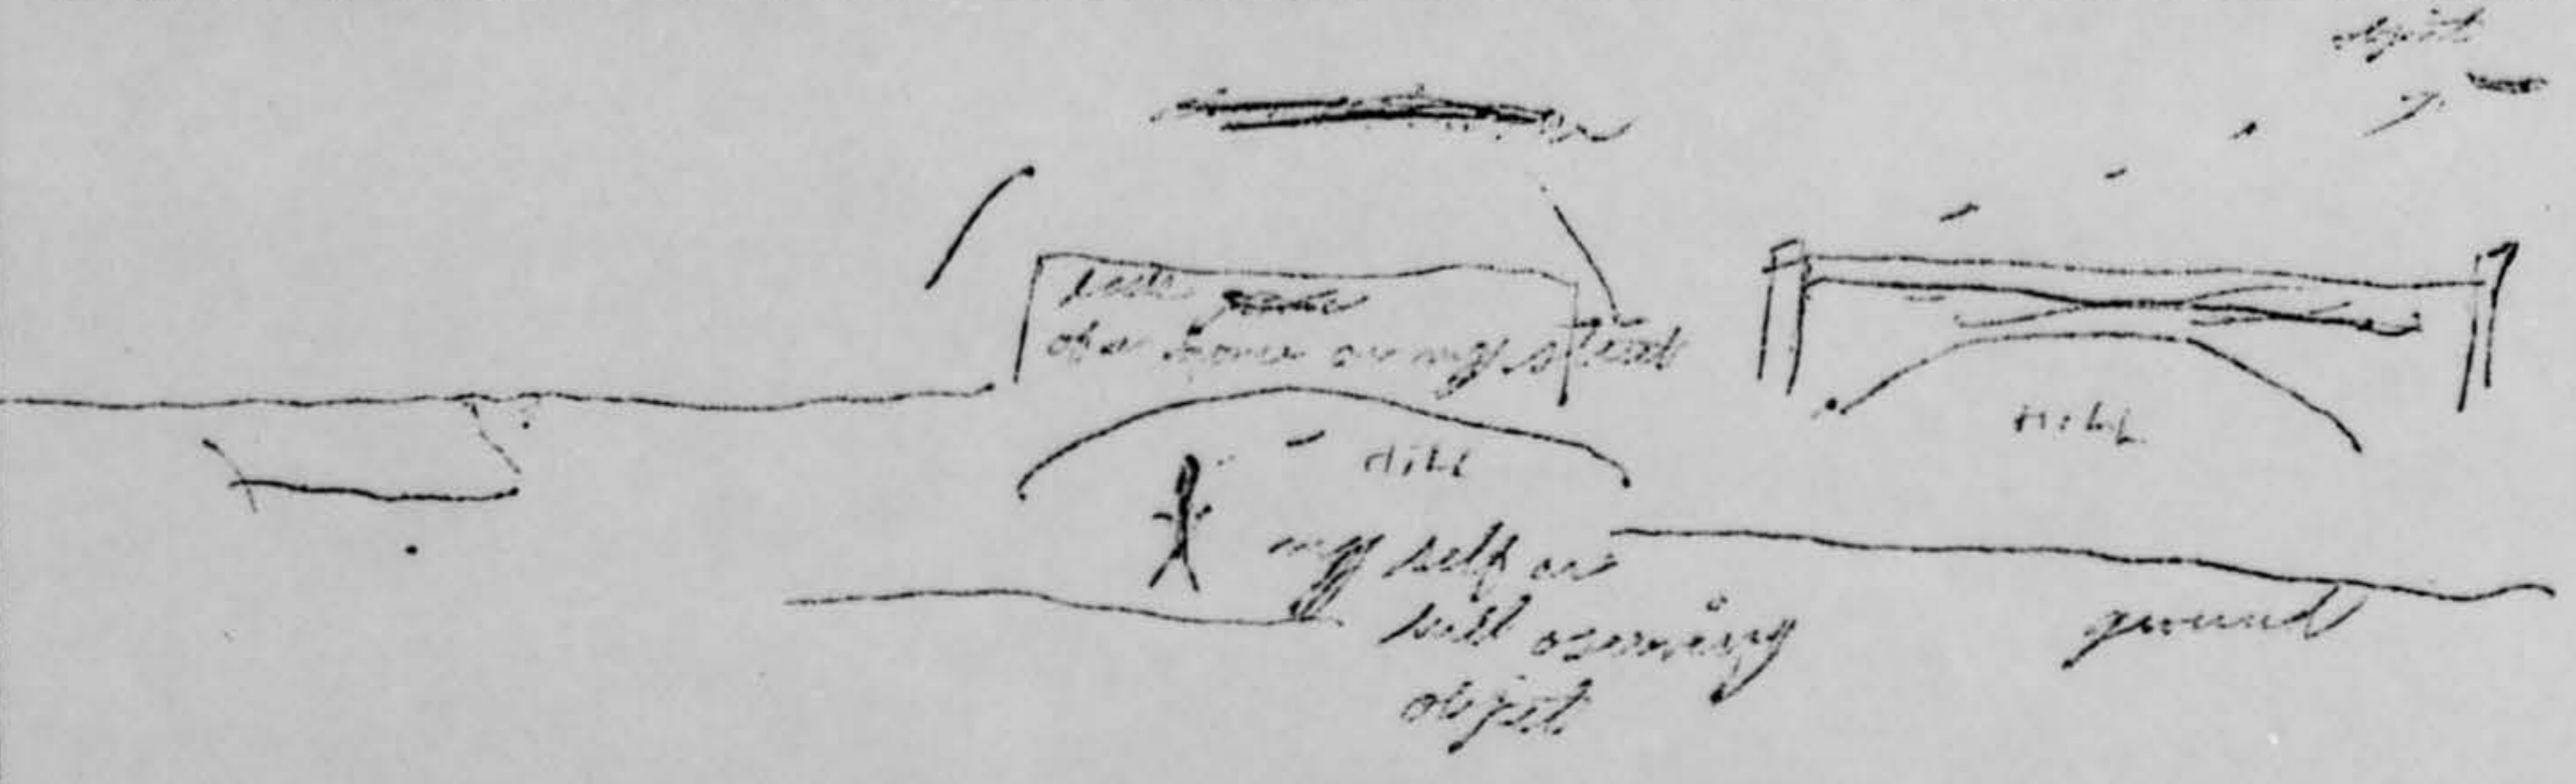 object
of a house on my street
HILL
HILL
my self on
hill oserving
object
ground